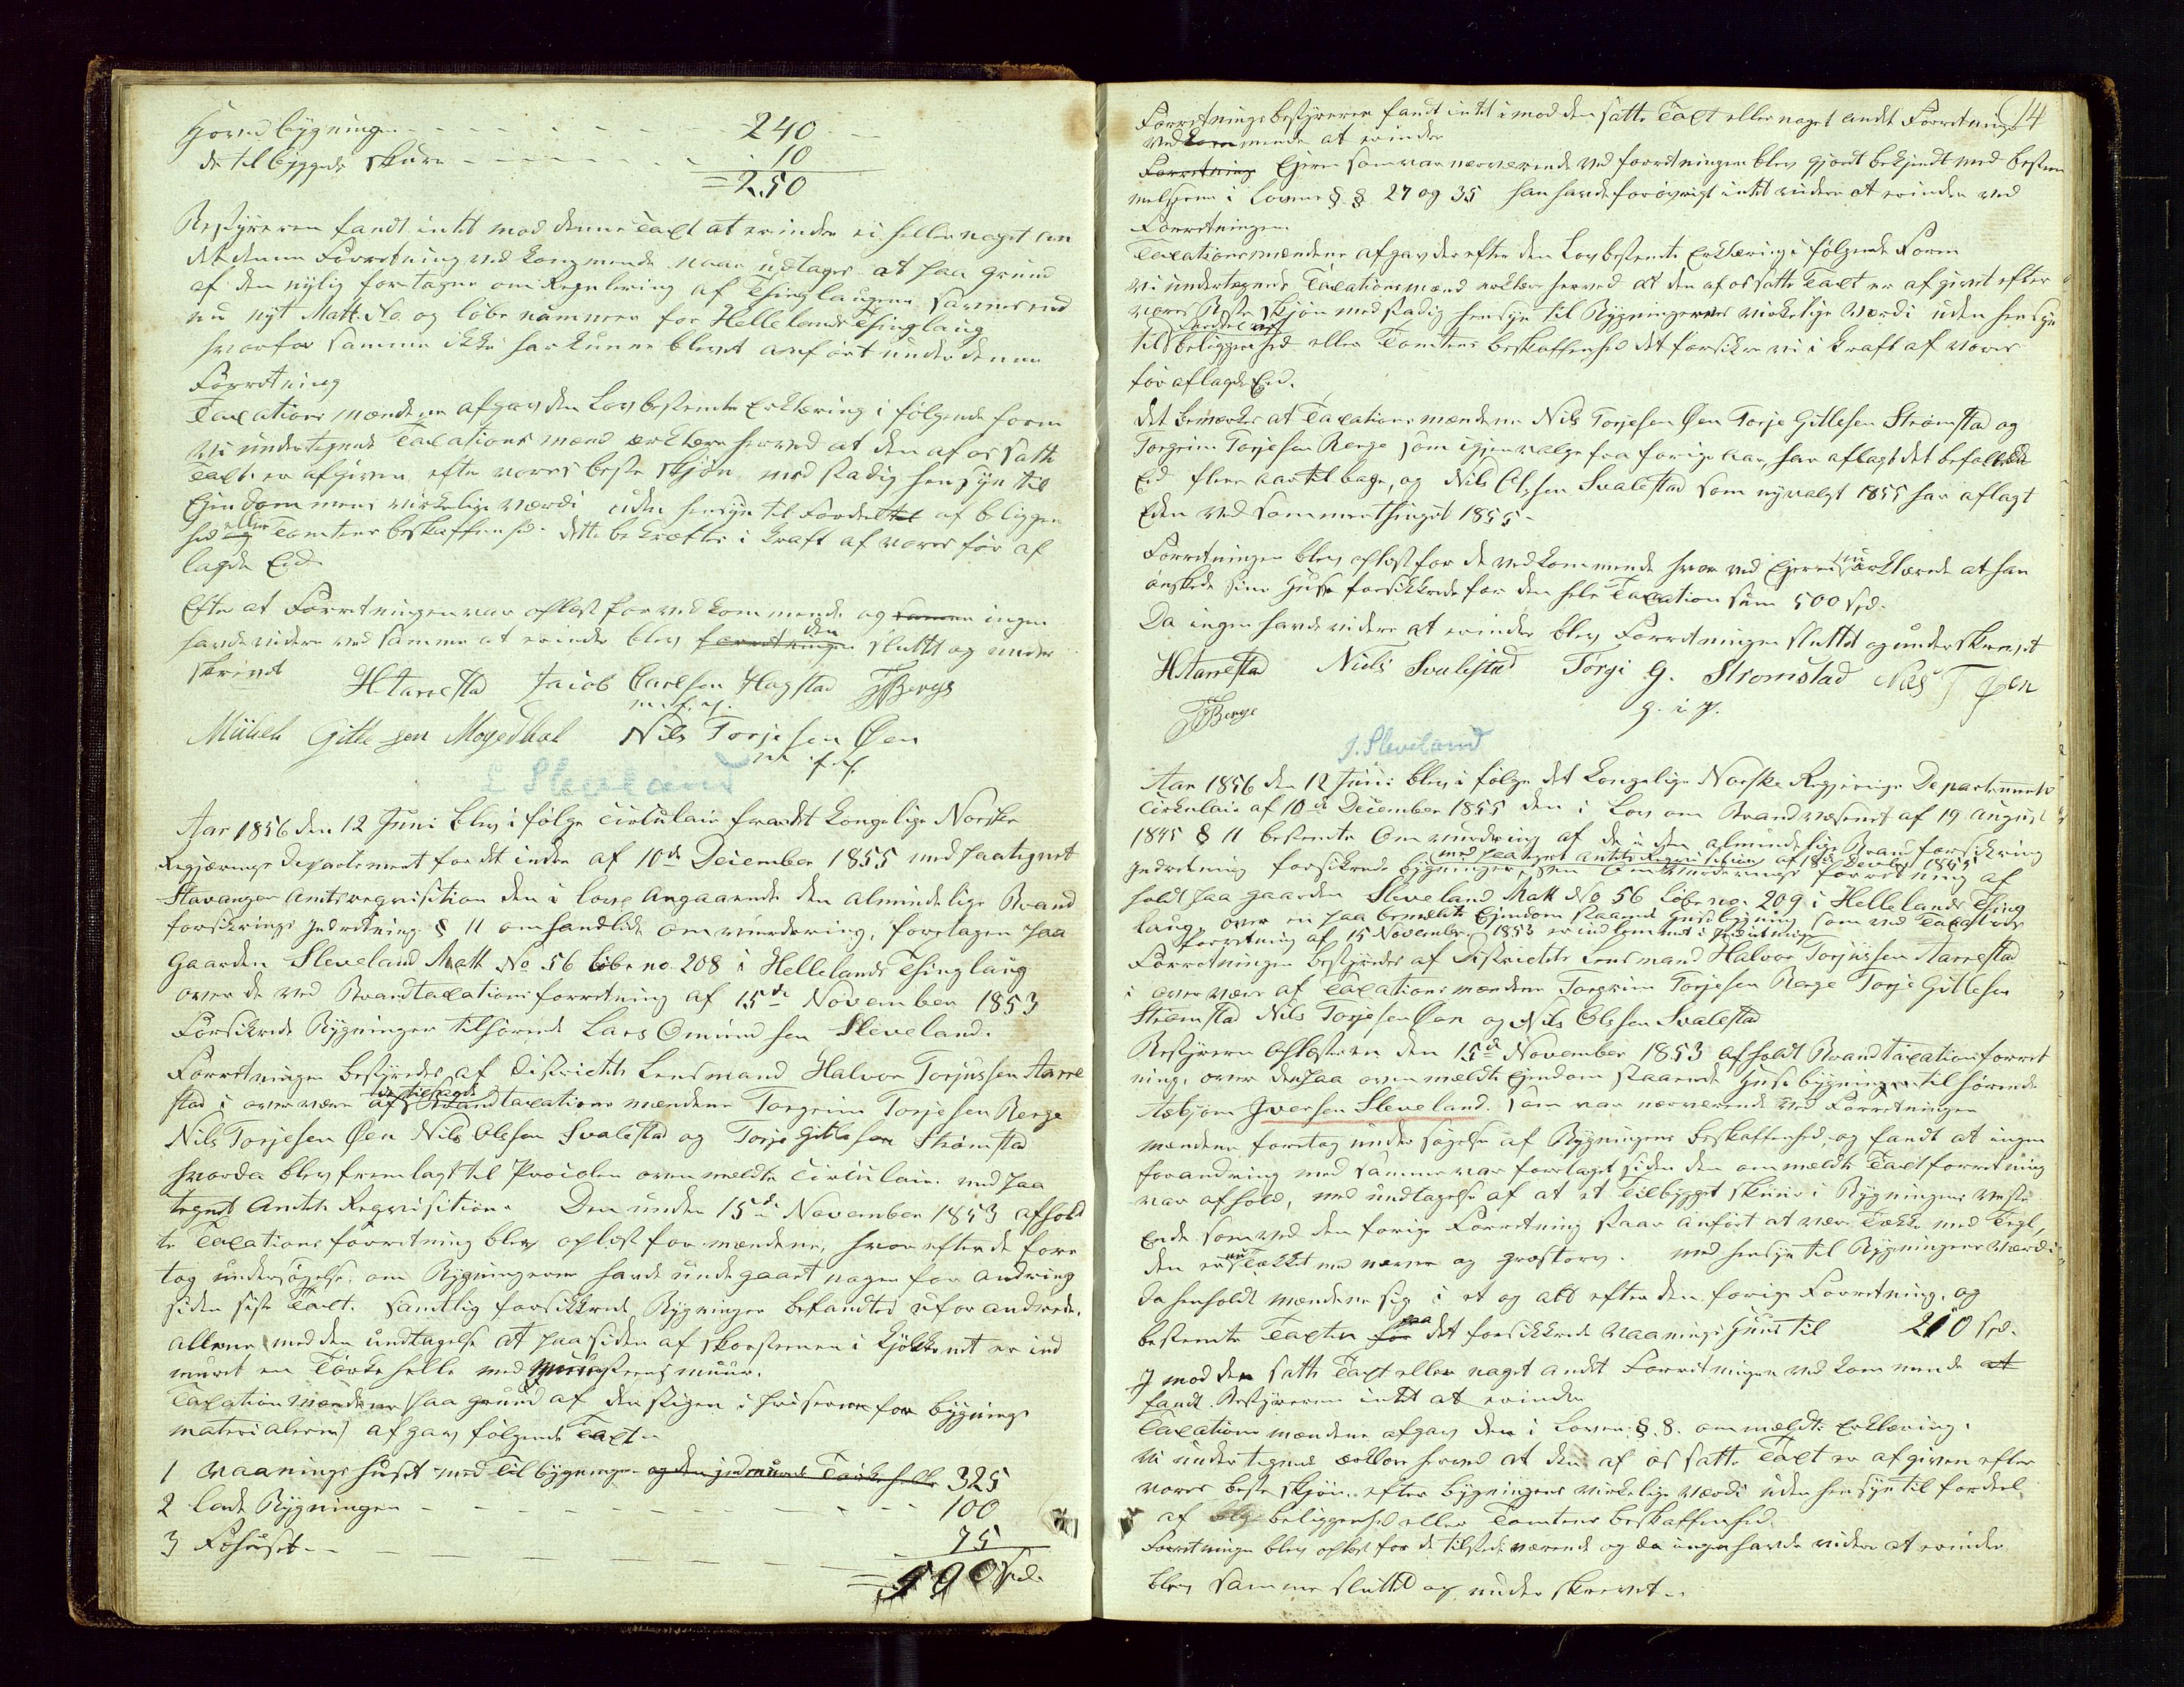 Hovedbygningen - - - - - - 240 -
de tilbyggede skure - - - - - - 10
= 250
Bestyreren fandt intet mod denne Taxt at erindre ei heller noget an
det denne Forretning vedkommende naar undtages at paa Grund
af den nylig foretagne om Regulering af Thinglaugene savnes end
nu nyt Matt. No. og løbe nummer for Hellelands Thinglaug
hvorfor samme ikke har kunne blevet anført under denne
Forretning
Taxationsmændene afgav den Lovbestemte Erklæring i følgende form
Vi undertegnede Taxationsmænd erklære herved at den af os satte
Taxt er afgiven efter vores beste skjøn med stadig hensyn til
Ejendommens virkelige værdi uden hensyn til Fordel af beliggen
hed eller Tomtens beskaffenhed. Dette bekræftes i kraft af vores før af
lagde Eed.
Efter at Forretningen var oplæst for vedkommende og ingen
havde videre ved samme at erindre blev den sluttet og under
skrivet
HTarrestad Jacob Carlsen Hagstad TTBerge
m. f. p.
Mikkel Gitlesen Mogedhal Nils Torjesen Øen
m. f. p.
L Sleveland
Aar 1856 den 12 Juni blev i følge Cirkulair fra det kongelige Norske
Regjærings Departement for det indre af 10de December 1855 med paategnet
Stavanger Amtsreqvisition den i love angaaende den almindelige Brand
forsikrings Indretning § 11 omhandlede omvurdering, foretagen paa
Gaarden Sleveland Matt No 56 Løbe no. 208 i Hellelands Thinglaug
over de ved Brandtaxationsforretning af 15de November 1853
Forsikrede Bygninger tilhørende Lars Omundsen Sleveland.
Forretningen bestyredes af Districtets Lensmand Halvor Torjussen Aarre
stad i overvære af Brandtaxationsmændene Torgrim Torjesen Berge
Nils Torjesen Øen Nils Olsen Svalestad og Torje Gitlesen Strømstad
hvorda blev fremlagt til Protocolen ovenmeldte Cirkulair med paa
tegnet Amts Reqvisition. Den under 15de November 1853 afhold
te Taxationsforretning blev oplæst for mændene, hvorefter de fore
tog undersøgelse, om Bygningerne havde undergaaet nogen forandring
siden siste Taxt. Samtlig forsikkrede Bygninger befandtes uforandrede.
Allene med den undtagelse at paa siden af skorstenen i Kjøkkenet er ind
muret en Tørkehelle med Muursteensmuur.
Taxationsmændene (paa grund af den stigen i Priserne for bygnings
materialerne) afgav følgende Taxt.
1 Vaaningshuset med Tilbygninger og den indmurede Tørkehelle 325
2 Lade Bygningen - - - - - - 100
3 Føhuset - - - - - - 75
= 500 Spd.
14
Forretningsbestyreren fandt intet imod den satte Taxt eller noget andet Forretningen
vedkommende at erindre
Forretning Ejeren som var nærværende ved forretningen blev gjordt bekjendt med bestem
melserne i Lovens §. §. 27 og 35 han havde forøvrigt intet videre at erindre ved
Forretningen.
Taxationsmændene afgav derefter den Lovbestemte Erklæring i følgende Form
Vi undertegnede Taxationsmænd erklære herved at den af os satte Taxt er afgivet efter
vores Beste skjøn med stadig hensyn til Bygningernes virkelige værdi uden hensyn
til Fordel af beliggenhed eller Tomtens beskaffenhed det forsikre vi i kraft af vores
før aflagde Eed.
Det bemærkes at Taxationsmændene Nils Torjesen Øen Torje Gitlesen Strømstad og
Torgrim Torjesen Berge som igjenvalge fra forige aar, har aflagt det befallede
Eed flere aar tilbage, og Nils Olsen Svalestad som nyvalgt 1855 har aflagt
Eden ved sommerthinget 1855.
Forretningen blev oplæst for de vedkommende hvorved Ejeren nu erklærede at han
ønskede sine Huse forsikkrede for den hele Taxationssum 500 Spd.
Da ingen havde videre at erindre blev Forretningen sluttet og underskrevet
HTarrestad Niels Svalestad Torje G. Stromstad Nils T Øen
TTBerge g. i p.
J. Sleveland
Aar 1856 den 12 Juni blev i følge det kongelige Norske Regjerings Departements
Cirkulair af 10de December 1855 den i Lov om Brandvæsenet af 19 August
1845 § 11 bestemte Omvurdering af de i den almindelige Brandforsikring
Indretning forsikrede bygninger, med paategnet Amtets Reqvisition af 18de Decembr 1855 en Omvurderings forretning af
holdt paa gaarden Sleveland Matt No 56 Løbe no. 209 i Hellelands Thing
laug, over en paa bemeldte Ejendom staaende Husebygning som ved Taxations
forretning af 15 November 1853 er indlemmet i Indretningen
Forretningen bestyredes af Districtets Lensmand Halvor Torjussen Aarrestad
i overvær af Taxationsmændene Torgrim Torjesen Berge Torje Gitlesen
Strømstad Nils Torjesen Øen og Nils Olsen Svalestad
Bestyreren oplæste en den 15de November 1853 afholdt Brandtaxationsforret
ning, over den paa ovenmeldte Ejendom staaende Husebygningen tilhørende
Asbjørn Iversen Sleveland. som var nærværende ved Forretningen
mændene foretog undersøgelse af Bygningens beskaffenhed, og fandt at ingen
forandring med samme var foretaget siden den ommeldte Taxtforretning
var afhold, med undtagelse af at et Tilbygget skuur i Bygningens vestre
Ende som ved den forige Forretning staar anført at være Tækt med Tegl,
den er nu Tækket med næver og græstorv. Med hensyn til Bygningens Værdi
da henholdt mændene sig i et og alt efter den forige Forretning, og
bestemte Taxten paa det forsikkrede Vaaningshuus til 210 Spd.
Imod den satte Taxt eller noget andet Forretningen vedkommende at
fandt Bestyreren intet at erindre
Taxationsmændene afgav den i Loven §. 8. ommeldte Erklæring.
Vi undertegnede erklære herved at den af os satte Taxt er afgiven efter
vores beste skjøn efter bygningens virkelige værdi uden hensyn til fordeel
af beliggenhed eller Tomtens beskaffenhed
Forretningen blev oplæst for de tilstedeværende og da ingen havde videre at erindre
blev samme sluttet og underskrevet.